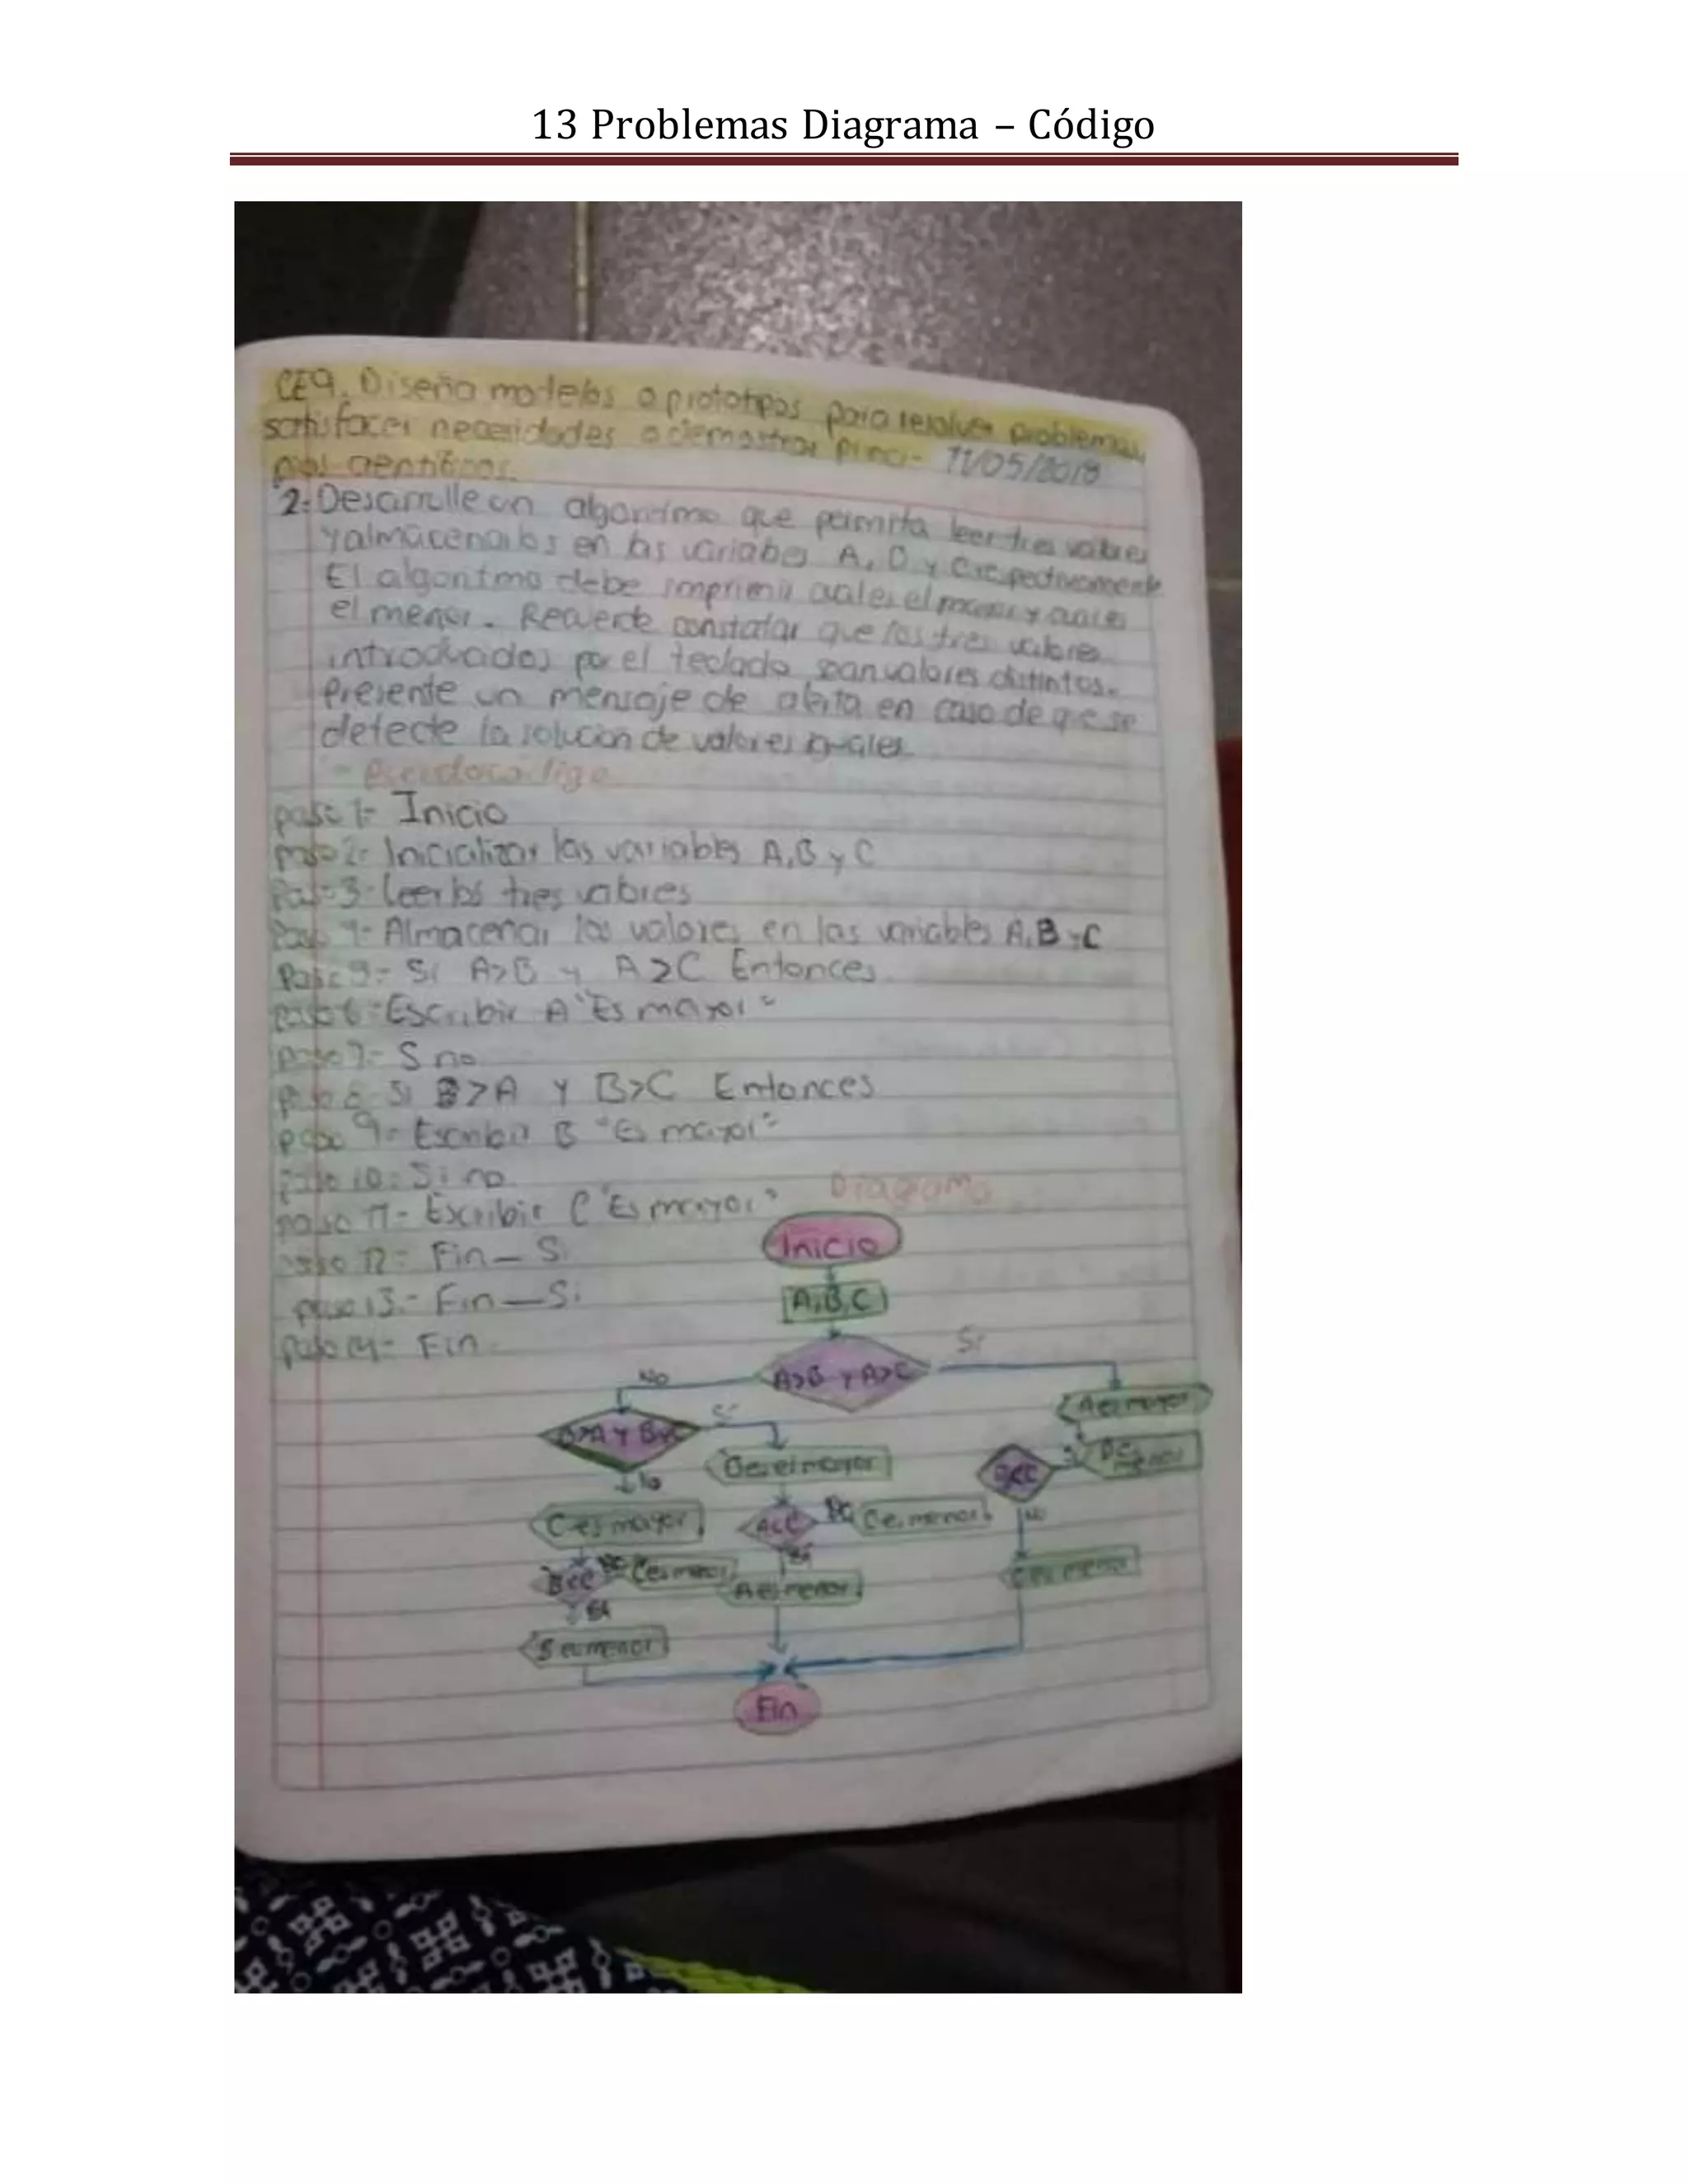 13 Problemas Diagrama – Código
CE9. Diseña modelos o prototipos para resolver problemas,
satisfacer necesidades o demostrar princi- 11/05/2018
pios científicos.
2- Desarrolle un algoritmo que permita leer tres valores
y almacenarlos en las variables A, B y C respectivamente
El algoritmo debe imprimir cual es el mayor y cual es
el menor. Recuerde constatar que los tres valores
introducidos por el teclado sean valores distintos.
Presente un mensaje de alerta en caso de que se
detecte la solucion de valores iguales
- Pseudocodigo
paso 1- Inicio
paso 2- Inicializar las variables A,B y C
Paso 3- Leer los tres valores
Paso 4- Almacenar los valores en las variables A,B y C
Paso 5- Si A>B y A>C Entonces
paso 6- Escribir A "Es mayor"
paso 7- Si no
paso 8 Si B>A Y B>C Entonces
paso 9- Escribir B "Es mayor"
paso 10- Si no
paso 11- Escribir C "Es mayor"
Diagrama
paso 12- Fin_Si
paso 13.- Fin_Si
paso 14- Fin.
Inicio
A,B,C
A>B Y A>C
Si
No
A es mayor
B>A Y B>C
Si
B es el mayor
No
B<C
Si
B es menor
C es mayor
A<C
No
C es menor
No
B<C
No
C es menor
Si
A es menor
C es menor
Si
B es menor
Fin